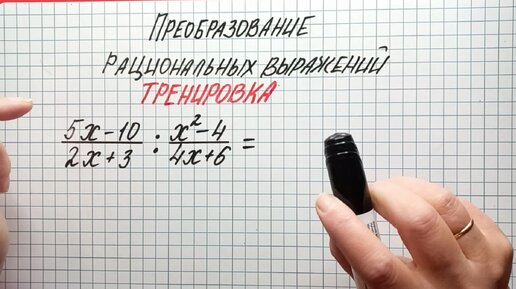 Преобразование
рациональных выражений
ТРЕНИРОВКА
(5x-10)/(2x+3) : (x²-4)/(4x+6) =